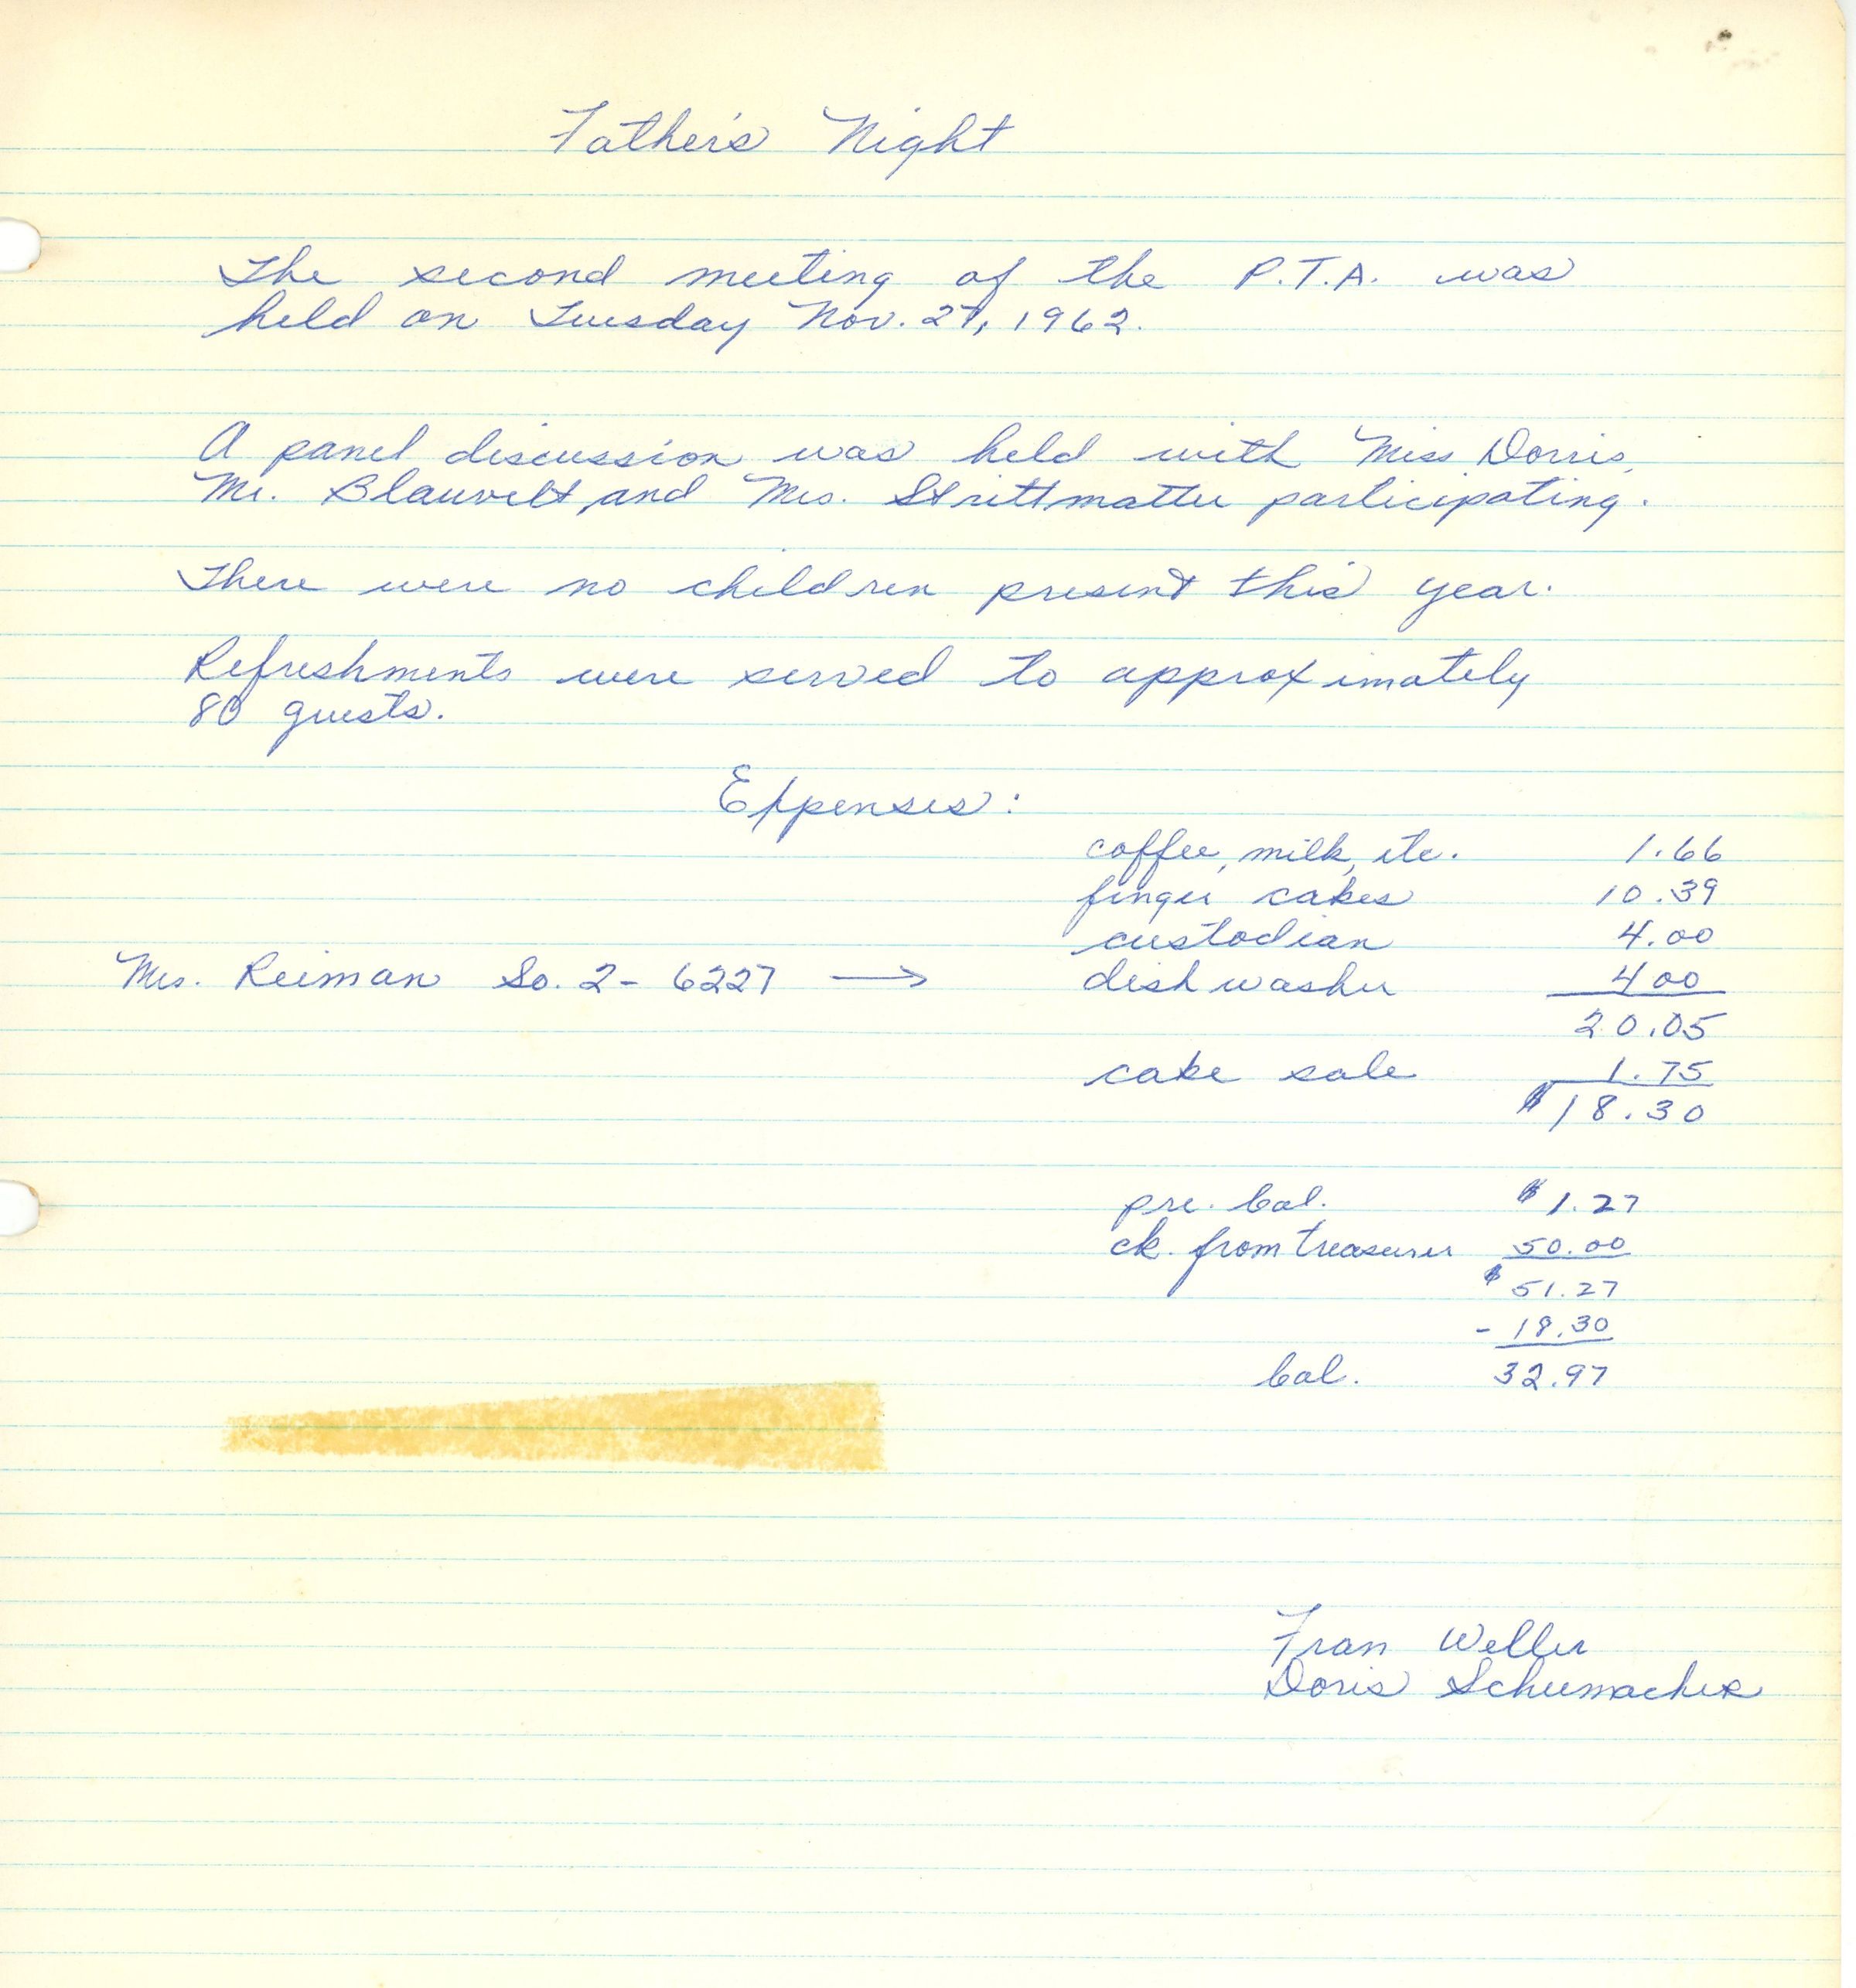 Father's Night
The second meeting of the P.T.A. was
held on Tuesday Nov. 27, 1962.
A panel discussion was held with Miss Dorris,
Mr. Blauvelt, and Mrs. Strittmatter participating.
There were no children present this year.
Refreshments were served to approximately
80 guests.
Expenses:
coffee, milk, etc. 1.66
finger cakes 10.39
custodian 4.00
Mrs. Reiman So. 2-6227 → dishwasher 4 00
20.05
cake sale 1.75
$18.30
pre. bal. $1.27
ck. from treasurer 50.00
$51.27
- 18.30
bal. 32.97
Fran Weller
Doris Schumacher